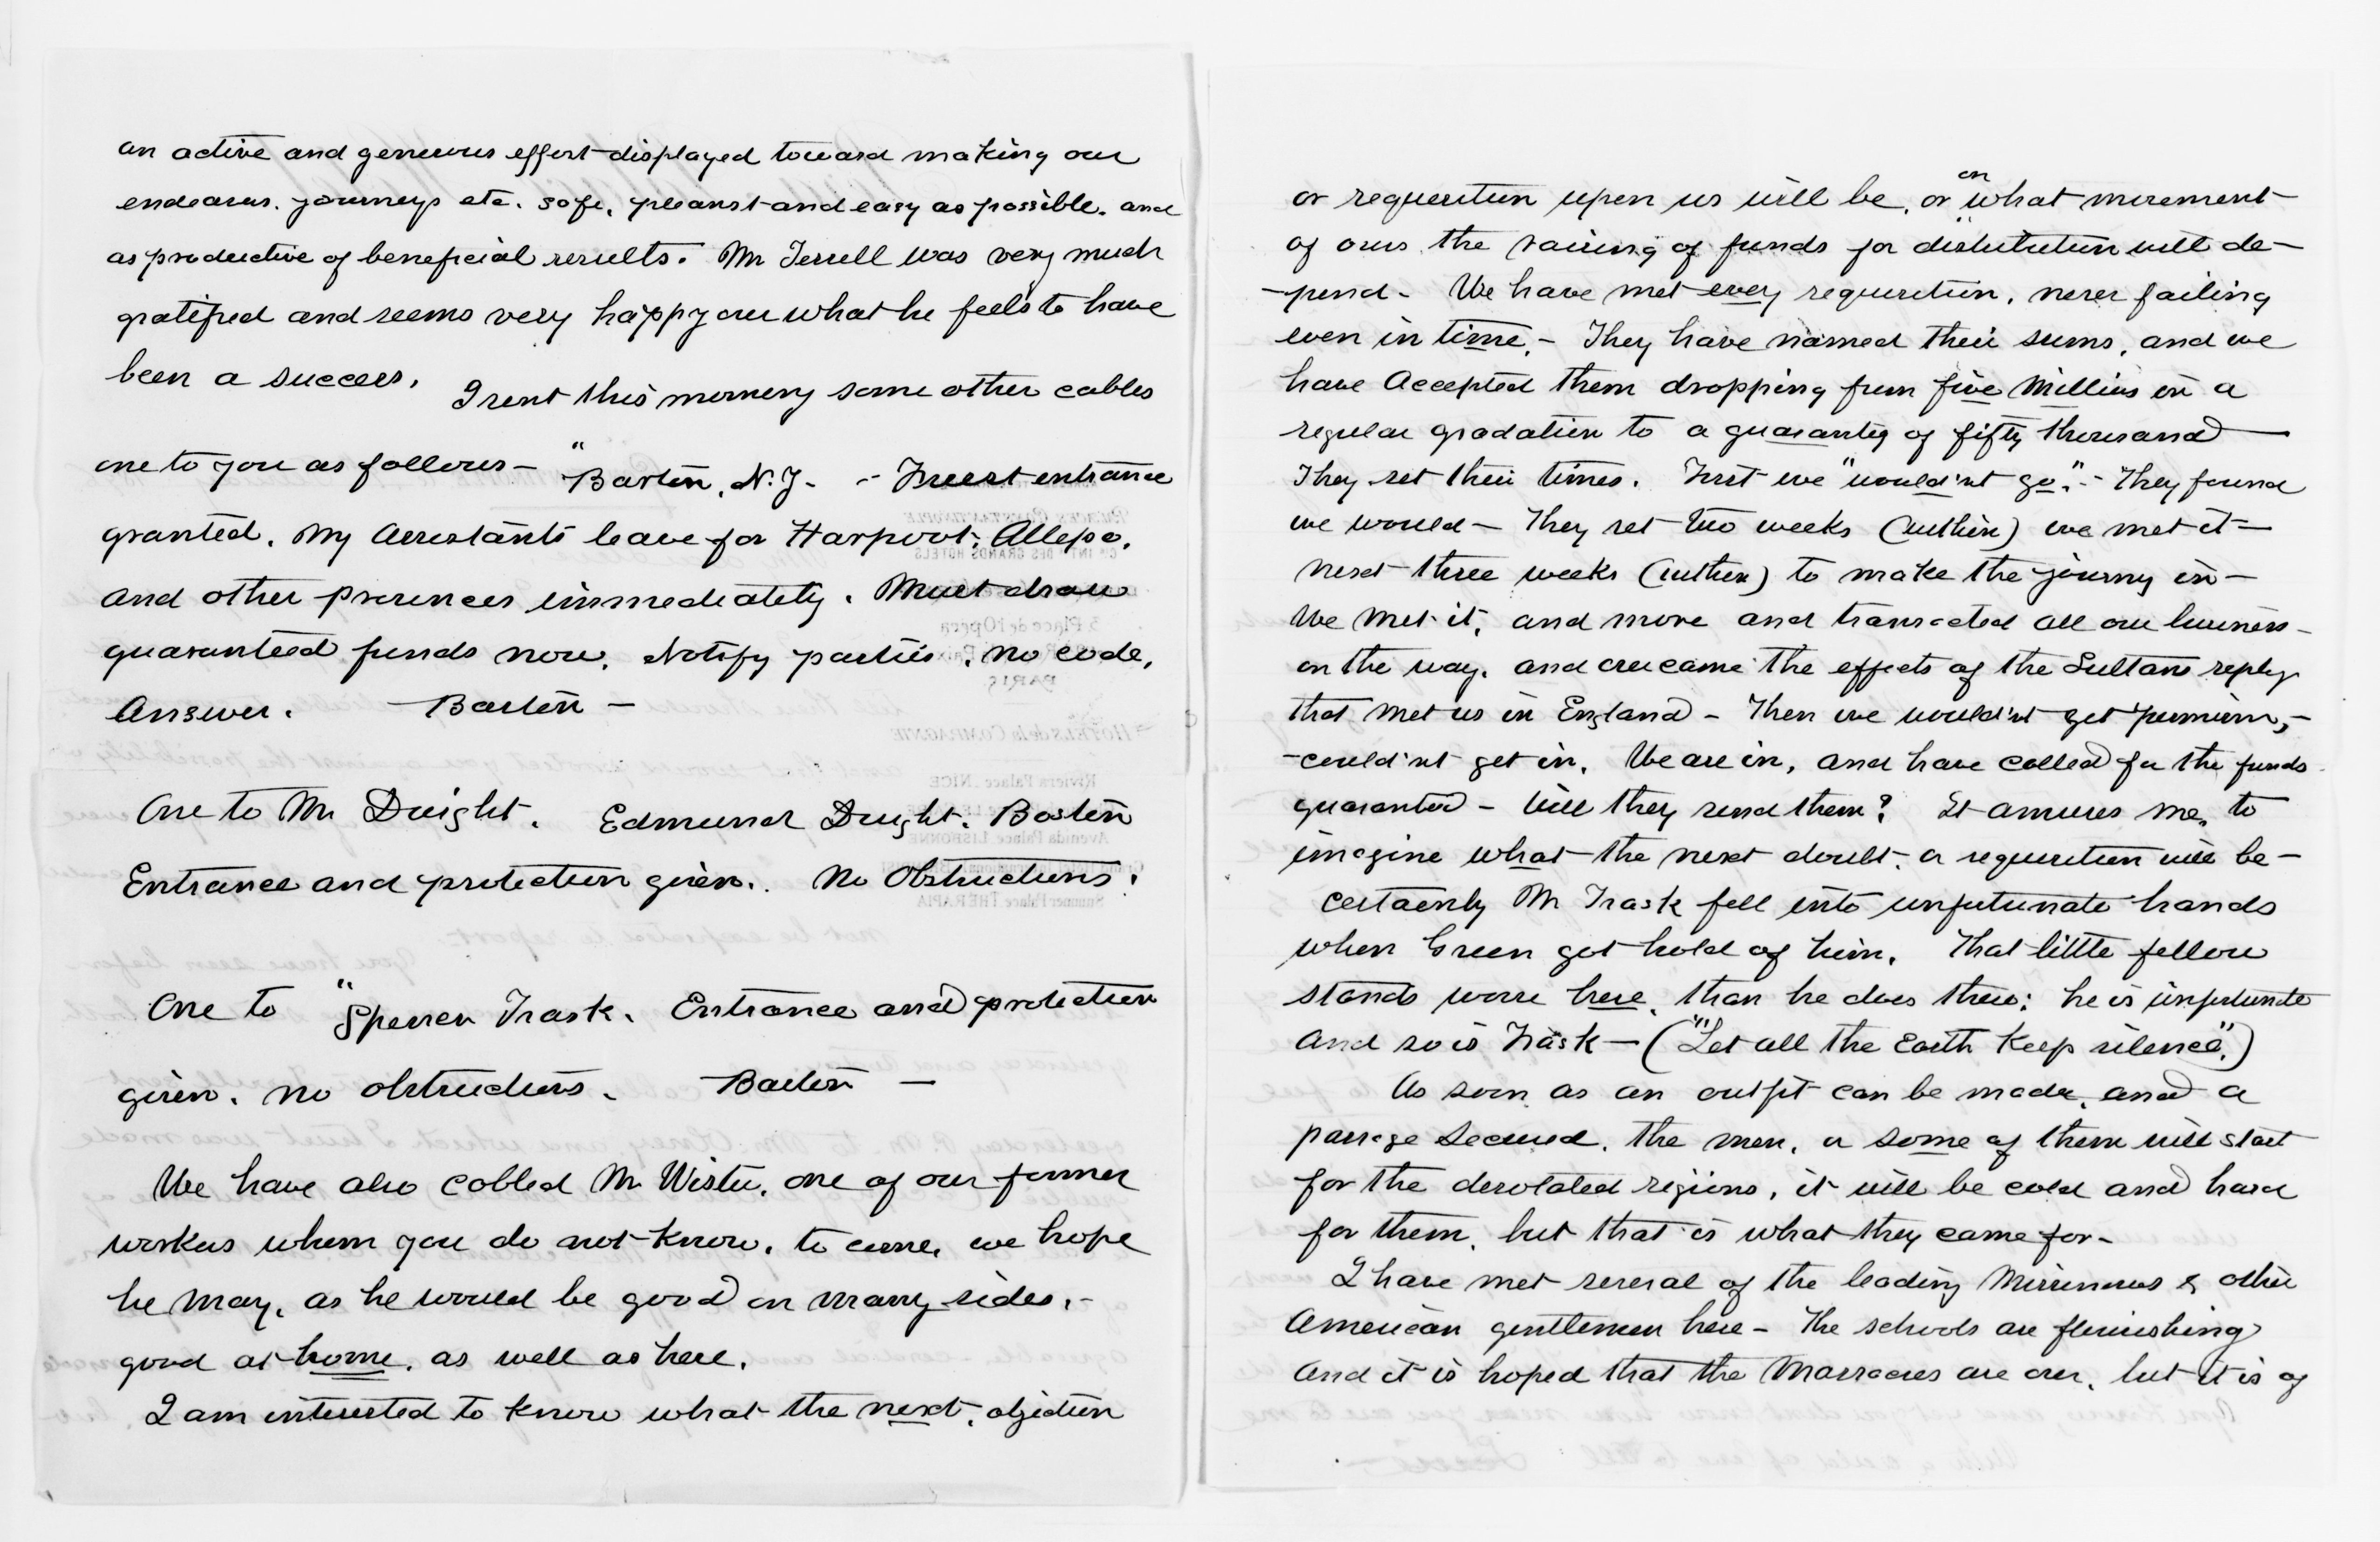 an active and generous effort displayed toward making our
endeavors, journeys etc. safe, pleasant and easy as possible, and
as productive of beneficial results. Mr Terrell was very much
gratified and seems very happy over what he feels to have
been a success.
I sent this morning some other cables
one to you as follows — "Barton, N.Y. - Freest entrance
granted. My Assistants leave for Harpoot, Allepo,
and other provences immediately. Must draw
guaranteed funds now. Notify parties. No code,
Answer. Barton —
One to Mr Dwight. Edmund Dwight. Boston
Entrance and protection given. No Obstructions.
One to "Spencer Trask. Entrance and protection
given. no obstructions. Barton —
We have also cabled Mr Wistar, one of our former
workers whom you do not know, to come, we hope
he may, as he would be good on many sides. -
good at home, as well as here.
I am interested to know what the next, objection
or requisition upon us will be, or on what movement
of ours the raising of funds for distribution will de-
-pend - We have met every requisition, never failing
even in time. - They have named their sums, and we
have Accepted them dropping from five Millions in a
regular gradation to a guaranty of fifty thousand —
They set their times. First we "would'nt go". - They found
we would — They set two weeks (within) we met it —
next three weeks (within) to make the journey in —
We met it, and more and transacted all our business -
on the way, and overcame the effects of the Sultans reply
that met us in England - Then we would'nt get permission, -
- could'nt get in. We are in, and have called for the funds
guaranteed - Will they send them? It amuses me, to
imagine what the next doubt, or requisition will be -
Certainly Mr Trask fell into unfortunate hands
when Green got hold of him. That little fellow
stands worse here, than he does there: he is unfortunate
and so is Trask — ("Let all the Earth Keep silence".)
As soon as an outfit can be made, and a
passage secured, the men, or some of them will start
for the desolated regions, it will be cold and hard
for them, but that is what they came for -
I have met several of the leading Missionaries & other
American gentlemen here - The schools are flourishing
and it is hoped that the Massacres are over, but it is of